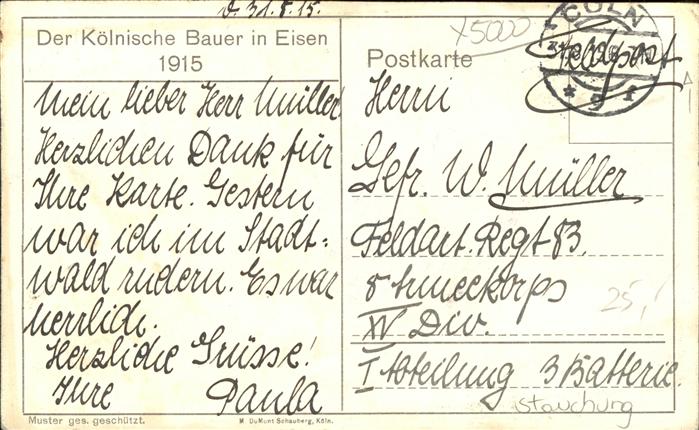 d. 31.8.15.
Der Kölnische Bauer in Eisen
1915
Mein lieber Herr Müller!
Herzlichen Dank für
Ihre Karte. Gestern
war ich im Stadt=
wald rudern. Es war
herrlich.
Herzliche Grüsse!
Ihre Paula
Muster ges. geschützt.
M. DuMont Schauberg, Köln.
x5000
CÖLN
Feldpost
* 9 f
Postkarte
Herrn
Gefr. W. Müller
Feldart. Regt 83.
8 Armeekorps
XV Div.
I Abteilung 3 Batterie.
25,
stauchung